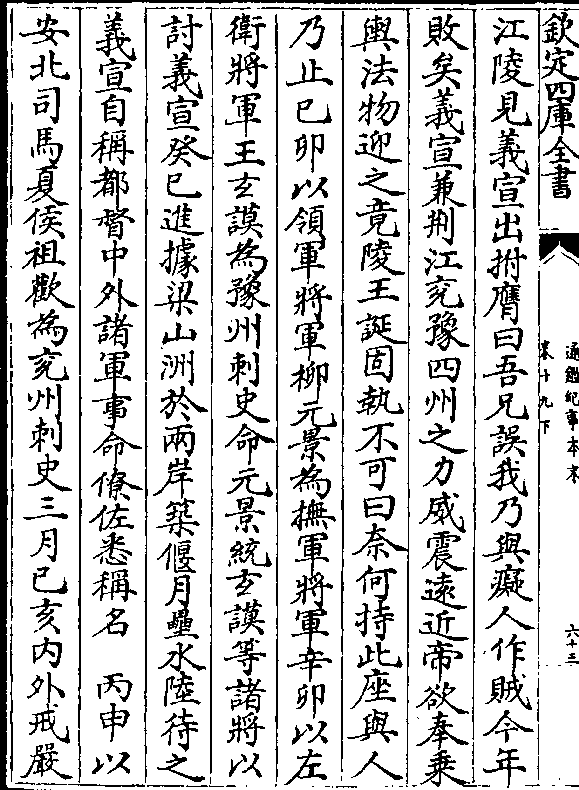 欽定四庫全書
通鑑紀事本末
卷十九下
六十三
江陵見義宣出拊膺曰吾兄誤我乃與癡人作賊今年
敗矣義宣兼荆江兖豫四州之力威震遠近帝欲奉乗
輿法物迎之竟陵王誕固執不可曰奈何持此座與人
乃止己卯以領軍將軍柳元景為撫軍將軍辛卯以左
衛將軍王玄謨為豫州刺史命元景統玄謨等諸將以
討義宣癸巳進據梁山洲於兩岸築偃月壘水陸待之
義宣自稱都督中外諸軍事命僚佐悉稱名　丙申以
安北司馬夏侯祖歡為兖州刺史三月己亥内外戒嚴